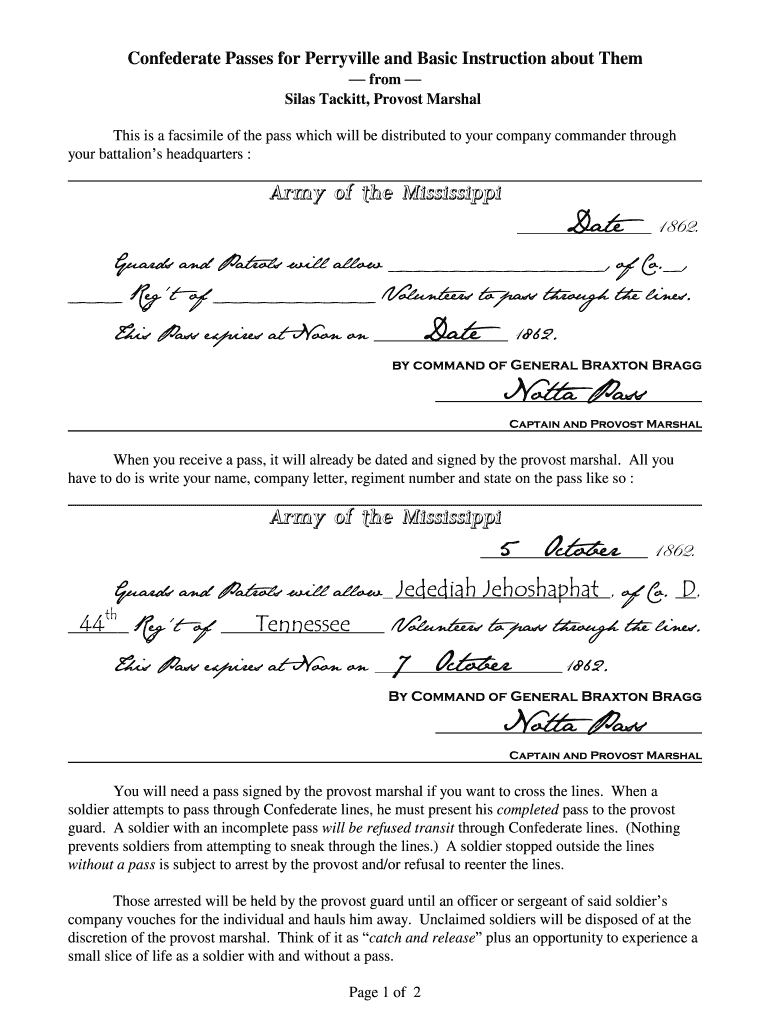 Confederate Passes for Perryville and Basic Instruction about Them
— from —
Silas Tackitt, Provost Marshal
This is a facsimile of the pass which will be distributed to your company commander through
your battalion's headquarters :
Army of the Mississippi
Date 1862.
Guards and Patrols will allow ____________________, of Co.__,
_____ Reg't of _______________ Volunteers to pass through the lines.
This Pass expires at Noon on ____Date____ 1862.
BY COMMAND OF GENERAL BRAXTON BRAGG
Notta Pass
CAPTAIN AND PROVOST MARSHAL
When you receive a pass, it will already be dated and signed by the provost marshal. All you
have to do is write your name, company letter, regiment number and state on the pass like so :
Army of the Mississippi
5 October 1862.
Guards and Patrols will allow Jedediah Jehoshaphat , of Co. D,
44th Reg't of Tennessee Volunteers to pass through the lines.
This Pass expires at Noon on 7 October 1862.
BY COMMAND OF GENERAL BRAXTON BRAGG
Notta Pass
CAPTAIN AND PROVOST MARSHAL
You will need a pass signed by the provost marshal if you want to cross the lines. When a
soldier attempts to pass through Confederate lines, he must present his completed pass to the provost
guard. A soldier with an incomplete pass will be refused transit through Confederate lines. (Nothing
prevents soldiers from attempting to sneak through the lines.) A soldier stopped outside the lines
without a pass is subject to arrest by the provost and/or refusal to reenter the lines.
Those arrested will be held by the provost guard until an officer or sergeant of said soldier's
company vouches for the individual and hauls him away. Unclaimed soldiers will be disposed of at the
discretion of the provost marshal. Think of it as "catch and release" plus an opportunity to experience a
small slice of life as a soldier with and without a pass.
Page 1 of 2